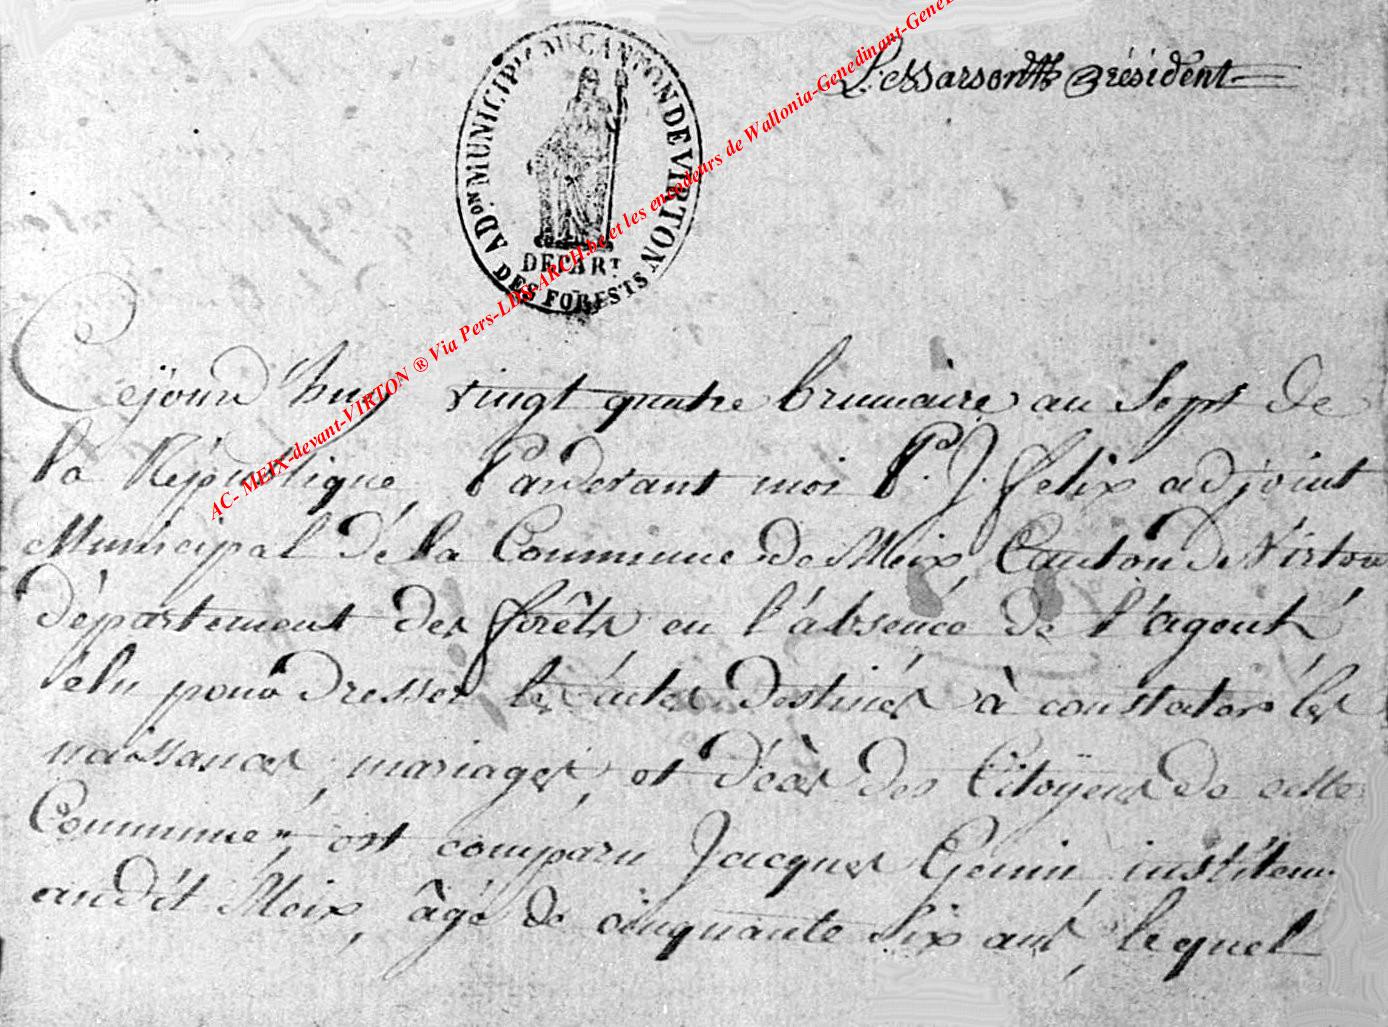 Président
ADon MUNICIPle DU CANTON DE VIRTON
DEPART
DES FORESTS
AC- MEIX-devant-VIRTON ® Via Pers-LDS-ARCH.be et les encodeurs de Wallonia-Genedinant-Gene
Cejourd'huy vingt quatre brumaire an Sept de
la République, Pardevant moi P. J. felix adjoint
Municipal de la Commune de Meix, Canton de Virton
département des forêts en l'absence de l'agent
élu pour dresser les actes destinés à constater les
naissances, mariages, et décès des Citoyens de cette
Commune, est comparu Jacques Genin instituteur
audit Meix, âgé de cinquante six ans, lequel